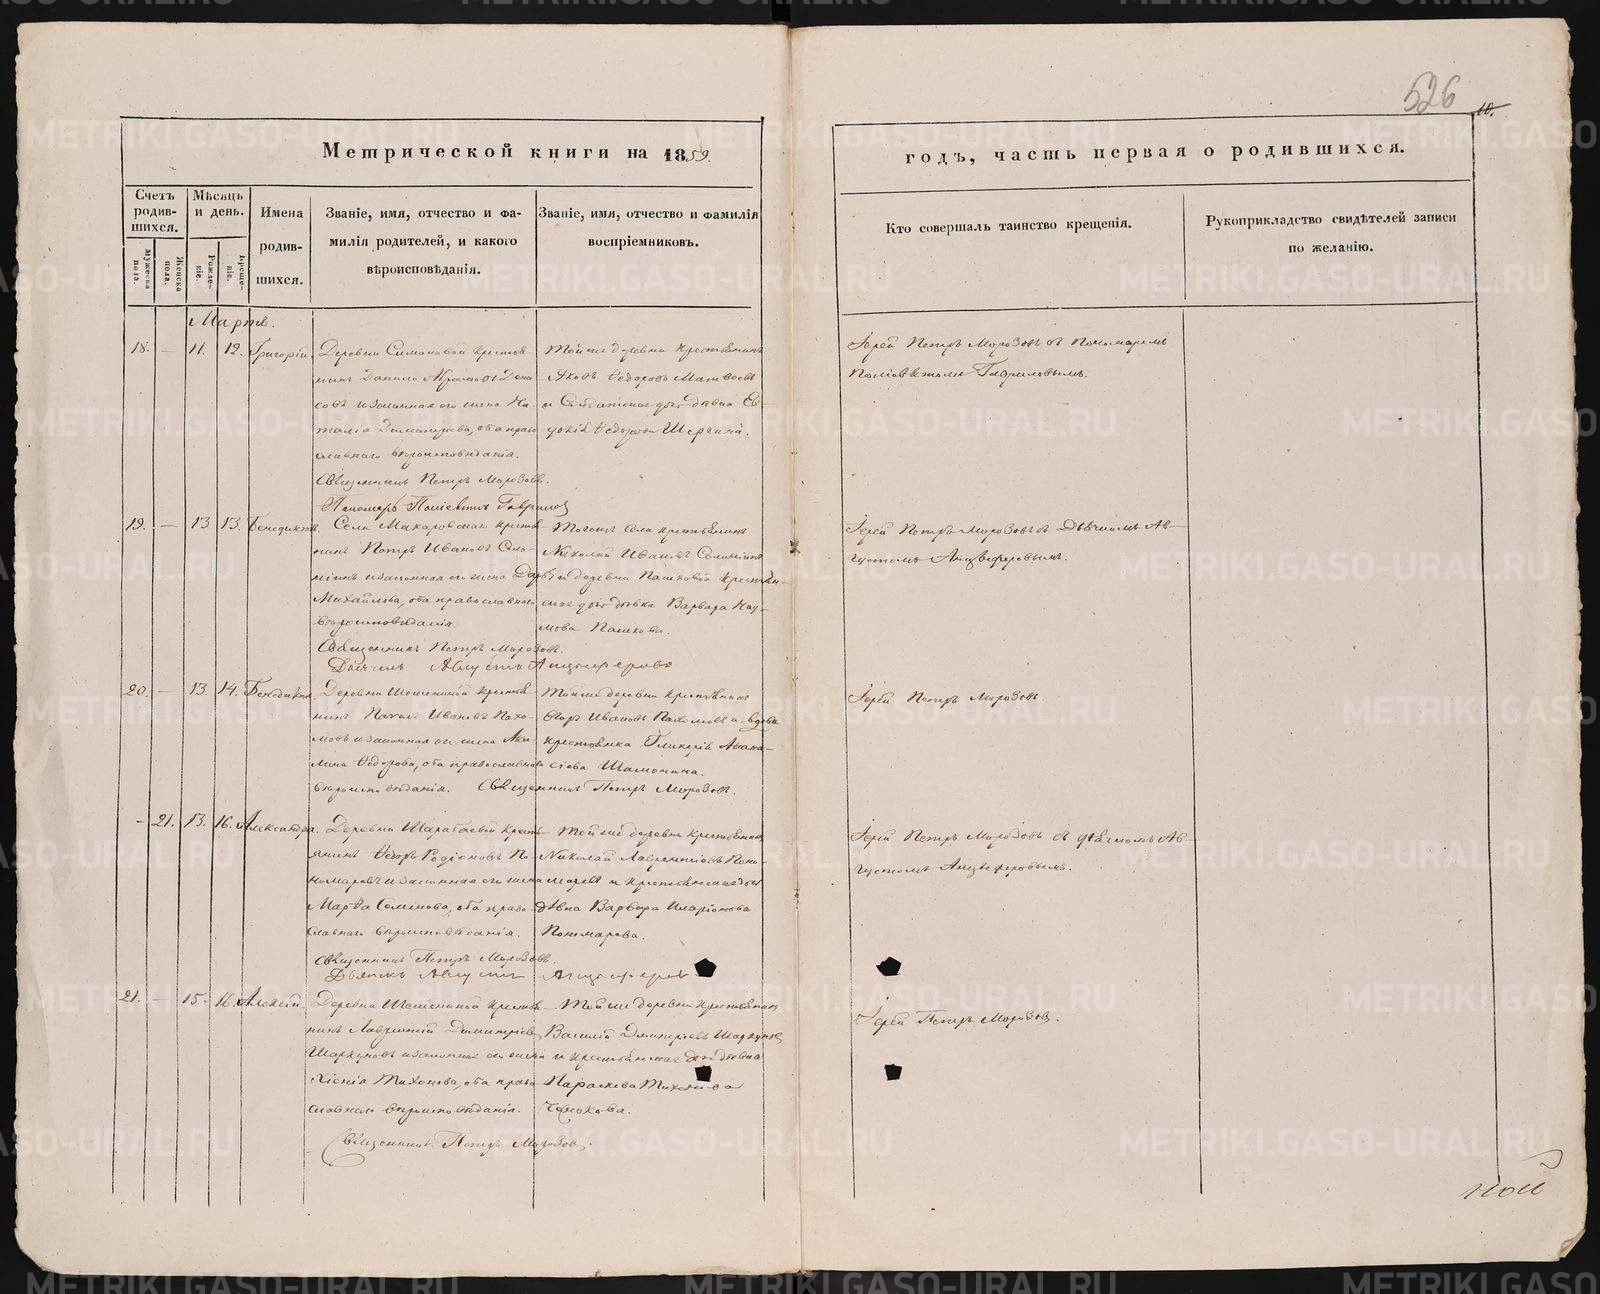 526
10.
Метрической книги на 1859.
годъ, часть первая о родившихся.
Счетъ родив- шихся.
Мѣсяцъ и день.
Имена родив- шихся.
Званіе, имя, отчество и фа- милія родителей, и какого вѣроисповѣданія.
Званіе, имя, отчество и фамилія воспріемниковъ.
Кто совершалъ таинство крещенія.
Рукоприкладство свидѣтелей записи по желанію.
Мужеска пола.
Женска пола.
Рожде- ніе.
Креще- ніе.
Марта.
18. — 11. 12. Григорій
Деревни Симановой крестья-
нинъ Данило Абрамовъ Дени-
совъ и законная его жена На-
талія Димитріева, оба право-
славнаго вѣроисповѣданія.
Священникъ Петръ Морозовъ.
Пономарь Поліевктъ Гавриловъ
Той же деревни крестьянинъ
Яковъ Ѳедоровъ Матвѣевъ
и Солдатская дочь дѣвка Ев-
докія Ѳедорова Шергина.
Іерей Петръ Морозовъ съ пономаремъ
Поліевктомъ Гавриловымъ.
19. — 13 13. Бенедиктъ.
Села Макаровскаго крестья-
нинъ Петръ Ивановъ Соло-
нинъ и законная его жена Дарья
Михайлова, оба православнаго
вѣроисповѣданія.
Священникъ Петръ Морозовъ.
Дьячекъ Августъ Анциферовъ
Тогожъ села крестьянинъ
Николай Ивановъ
и деревни Пашковой крестьян-
ская дочь дѣвка Варвара Нау-
мова Пашкова.
Іерей Петръ Морозовъ съ Дьячкомъ Ав-
густомъ Анциферовымъ.
20. — 13. 14. Бенедиктъ
Деревни крестья-
нинъ Павелъ Ивановъ Пахо-
мовъ и законная его жена Аки-
лина Ѳедорова, оба православнаго
вѣроисповѣданія. Священникъ Петръ Морозовъ.
Той же деревни крестьянинъ
Егоръ Ивановъ Пахомовъ и вдова
крестьянка Гликерія Аѳана-
сіева Шамонина.
Іерей Петръ Морозовъ
— 21. 13. 16. Александра.
Деревни крестья-
янинъ Ѳедоръ Родіоновъ По-
номаревъ и законная его жена
Марѳа Семенова, оба право-
славнаго вѣроисповѣданія.
Священникъ Петръ Морозовъ.
Дьячекъ Августъ Анциферовъ
Той же деревни крестьянинъ
Николай Лаврентіевъ Поно-
маревъ и крестьянская дочь
дѣвка Варвара Иларіонова
Пономарева.
Іерей Петръ Морозовъ съ дьячкомъ Ав-
густомъ Анциферовымъ.
21. — 15. 16. Алексій.
Деревни крестья-
нинъ Лаврентій Димитріевъ
Шаркуновъ и законная его жена
Ксенія Тихонова, оба право-
славнаго вѣроисповѣданія.
Священникъ Петръ Морозовъ.
Той же деревни крестьянинъ
Василій Димитріевъ Шаркуновъ
и крестьянская дочь дѣвка
Параскева Тихонова
Іерей Петръ Морозовъ.
ной
METRIKI.GASO-URAL.RU